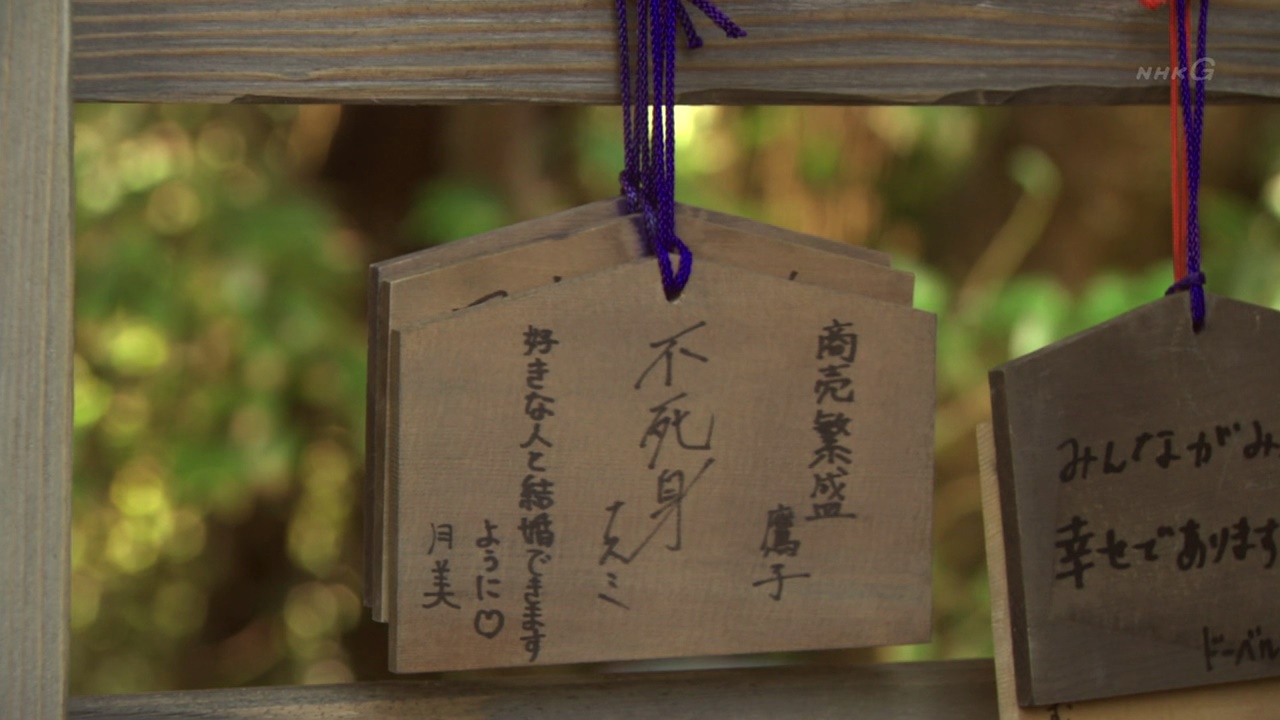 NHK G
商売繁盛
鷹子
不死身
えミ
好きな人と結婚できます
ように♡
月美
みんながみ
幸せであります
ドーバル